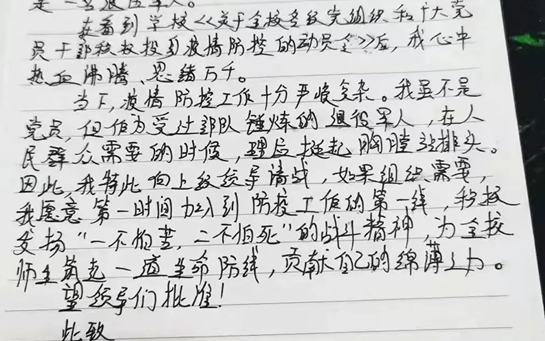 是一名退伍军人。
在看到学校《关于全校各级党组织和广大党
员干部积极投身疫情防控的动员令》后，我心中
热血沸腾，思绪万千。
当下，疫情防控工作十分严峻复杂。我虽不是
党员，但作为受过部队锤炼的退役军人，在人
民群众需要的时候，理应挺起胸膛站排头。
因此，我特此向上级领导请战，如果组织需要，
我愿意第一时间加入到防控工作的第一线，积极
发扬“一不怕苦，二不怕死”的战斗精神，为全校
师生筑起一道生命防线，贡献自己的绵薄之力。
望领导们批准！
此致